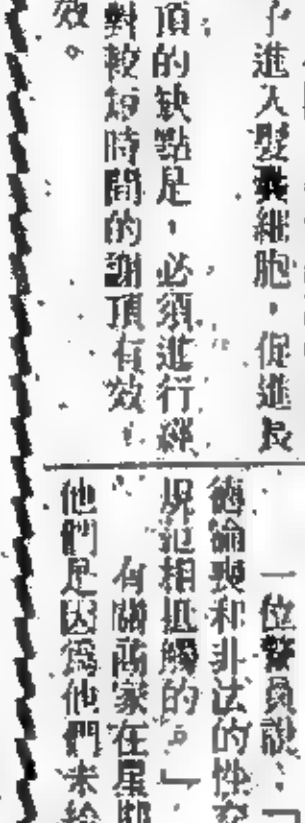 子進入髮囊細胞，促進長
頂的缺點是，必須進行
對較短時間的謝頂有效，
效。
一位警員說，「
德淪喪和非法的性
規範相抵觸的。」
有關商家在星期
他們是因為他們未給